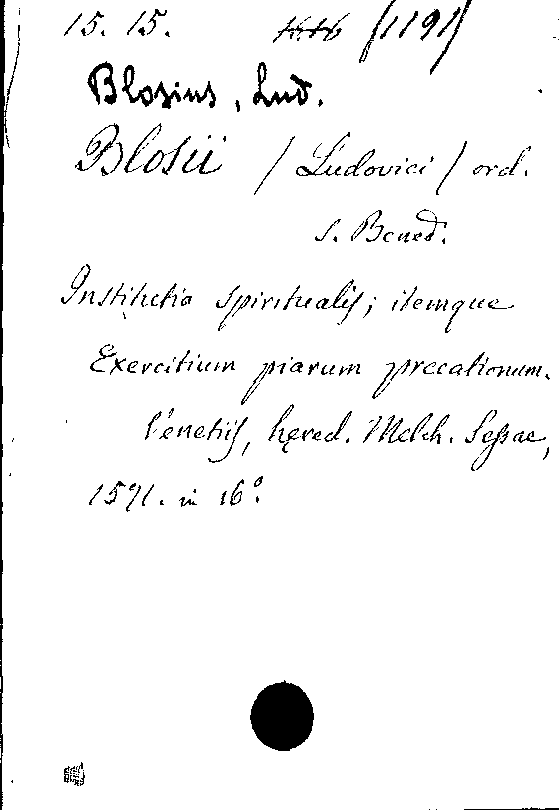 15. 15. 1616 /1191/
Blosius, Lud.
Blosii /Ludovici/ ord.
s. Bened.
Institutio spiritualis; itemque
Exercitium piarum precationum.
Venetiis, hered. Melch. Sessae,
1591. in 16°.